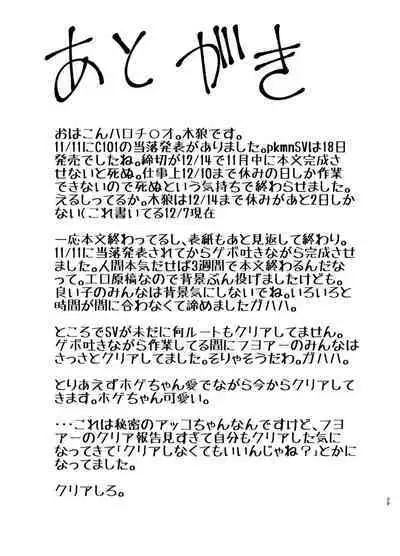 あとがき
おはこんハロチ〇オ。木狼です。
11/11にC101の当落発表がありました。pkmnSVは18日
発売でしたね。締切が12/14で11月中に本文完成さ
せないと死ぬ。仕事上12/10まで休みの日しか作業
できないので死ぬという気持ちで終わらせました。
えるしってるか。木狼は12/14まで休みがあと2日しか
ない(これ書いてる12/7現在
一応本文終わってるし、表紙もあと見返して終わり。
11/11に当落発表されてからゲボ吐きながら完成させ
ました。人間本気だせば3週間で本文終わるんだな
って。エロ原稿なので背景ぶん投げましたけども。
良い子のみんなは背景気にしないでね。いろいろと
時間が間に合わなくて諦めましたガハハ。
ところでSVが未だに何ルートもクリアしてません。
ゲボ吐きながら作業してる間にフヨアーのみんなは
さっさとクリアしてました。そりゃそうだわ。ガハハ。
とりあえずホゲちゃん愛でながら今からクリアして
きます。ホゲちゃん可愛い。
・・・これは秘密のアッコちゃんなんですけど、フヨ
アーのクリア報告見すぎて自分もクリアした気に
なってきて「クリアしなくてもいいんじゃね？」とかに
なってました。
クリアしろ。